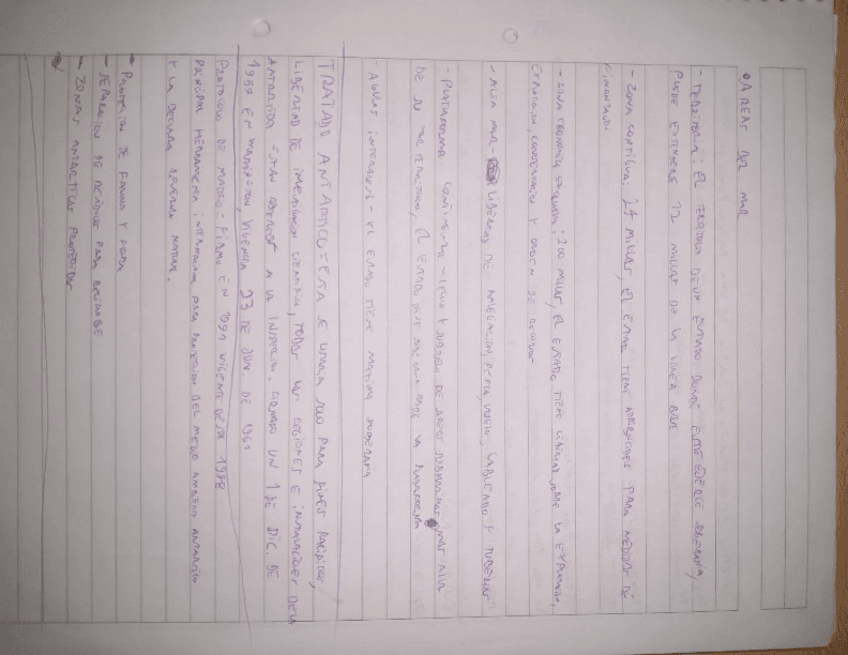 • AREAS DEL MAR
- TERRITORIAL: EL TERRITORIO DE UN ESTADO DONDE ESTE EJERCE SOBERANIA,
PUEDE EXTENDERSE 12 MILLAS DE LA LINEA BASE
- ZONA CONTIGUA: 24 MILLAS, EL ESTADO TIENE ATRIBUCIONES PARA MEDIDAS DE
- ZONA ECONOMICA EXCLUSIVA: 200 MILLAS, EL ESTADO TIENE SOBRE LA EXPLORACION,
EXPLOTACION, CONSERVACION Y DE
- ALTA MAR - LIBERTAD DE NAVEGACION, PESCA, VUELO, CABLEADO Y TUBERIAS
- PLATAFORMA CONTINENTAL - LECHO Y SUBSUELO DE AREAS SUBMARINAS MAS ALLA
DE SU MAR TERRITORIAL, EL ESTADO LA PLATAFORMA
- AGUAS INTERIORES - EL ESTADO TIENE MAXIMA SOBERANIA
TRATADO ANTARTICO = ESTA SE USARA SOLO PARA FINES PACIFICOS,
LIBERTAD DE INVESTIGACION CIENTIFICA, TODAS LAS ESTACIONES E INSTALACIONES DE LA
ANTARTIDA ESTAN ABIERTAS A LA INSPECCION. FIRMADO UN 1 DE DIC. DE
1959 EN WASHINGTON, VIGENCIA 23 DE JUN. DE 1961
PROTOCOLO DE MADRID = FIRMO EN 1991 VIGENTE DESDE 1998
PRINCIPAL HERRAMIENTA INTERNACIONAL PARA PROTECCION DEL MEDIO AMBIENTE ANTARTICO
Y LA DECLARA RESERVA NATURAL.
- PROTECCION DE FAUNA Y FLORA
- SEPARACION DE RESIDUOS PARA RECICLARSE
- ZONAS ANTARTICAS PROTEGIDAS